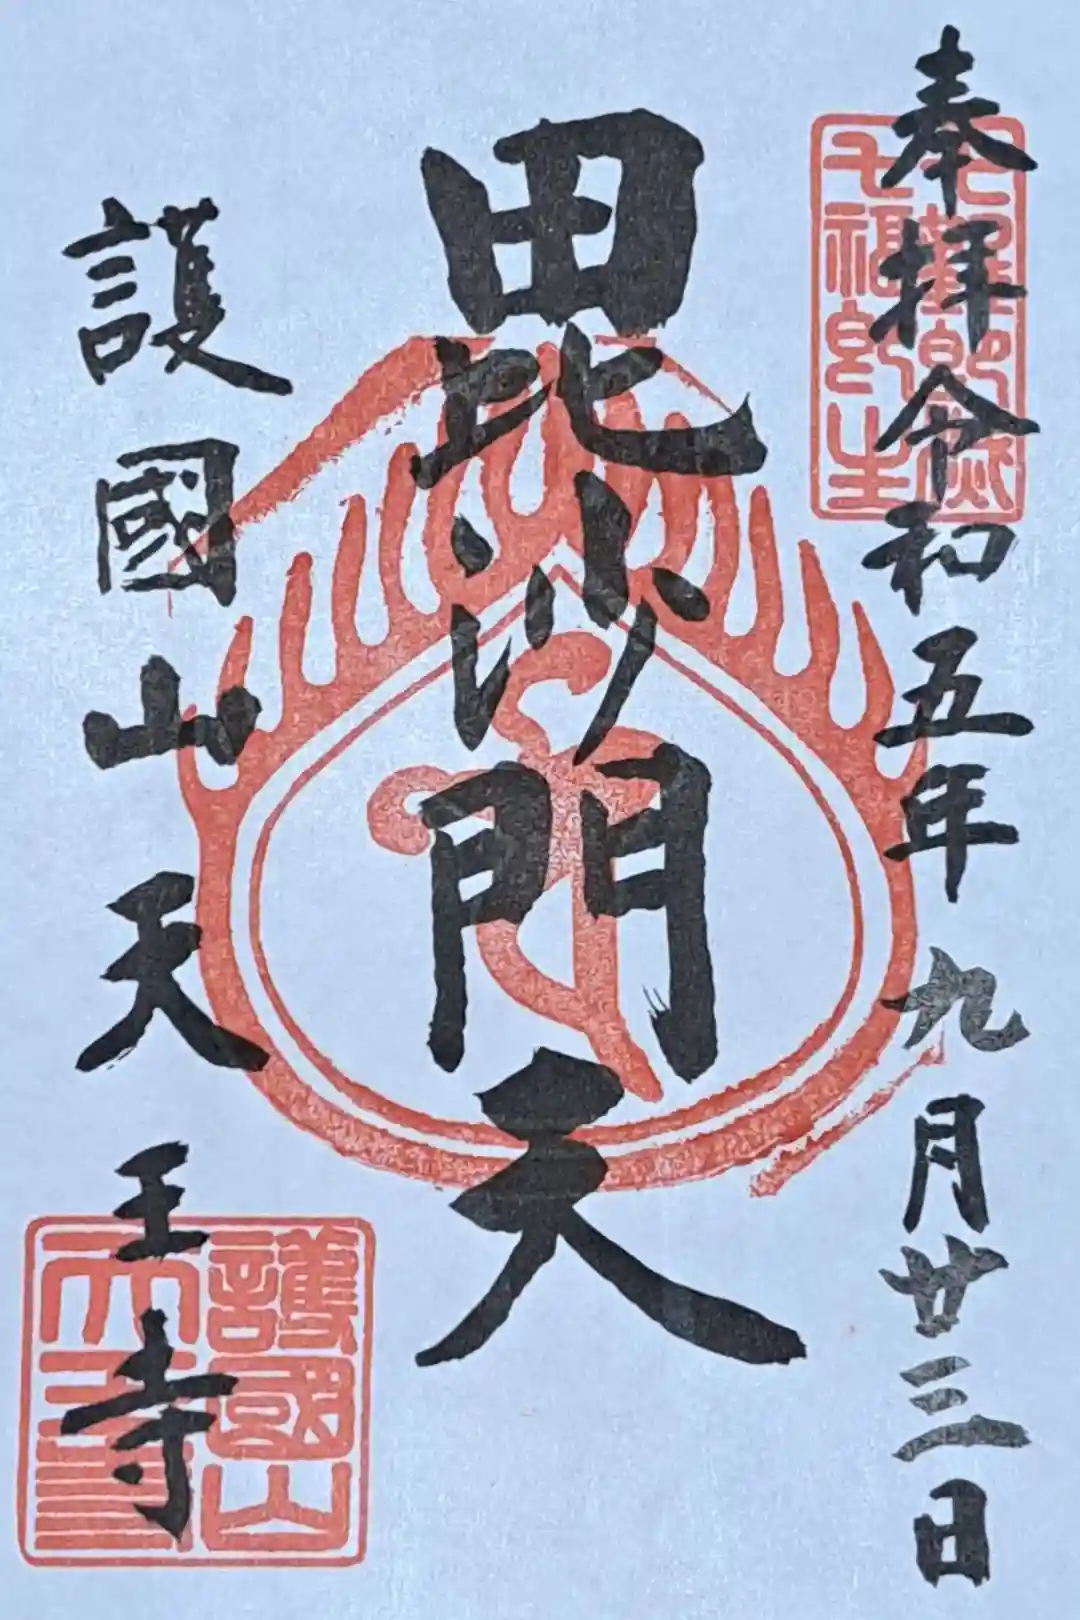 奉拝令和五年九月廿三日
七難即滅
七福即生
毘沙門天
護國山天王寺
護國山
天王寺